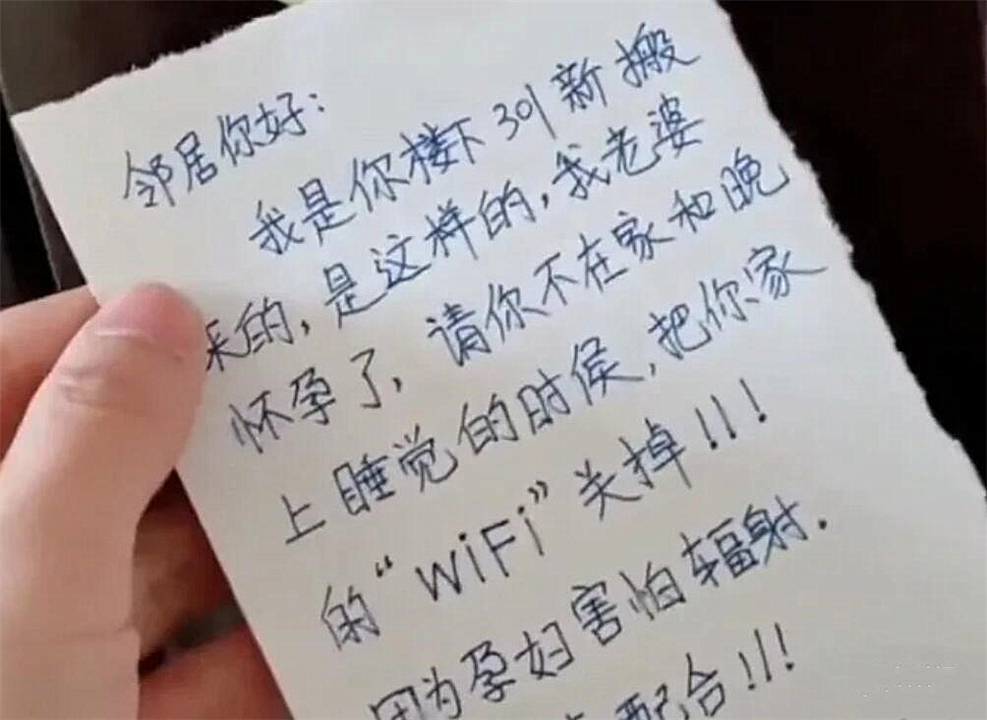 邻居你好：
我是你楼下301新搬
来的，是这样的，我老婆
怀孕了，请你不在家和晚
上睡觉的时侯，把你家
的“WiFi”关掉！！！
因为孕妇害怕辐射.
配合！！！